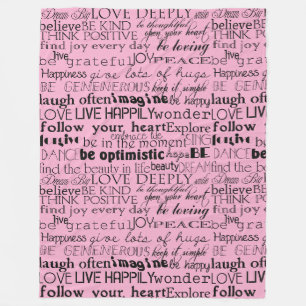 Dream Big LOVE DEEPLY smile
believe BE KIND be thoughtful
THINK POSITIVE open your heart
find joy every day be loving
live be grateful JOY PEACE
Happiness give lots of hugs
BE GENEROUS keep it simple
laugh often imagine be happy
LOVE LIVE HAPPILY wonder
follow your heart Explore
forgive be in the moment embrace life BEING
DANCE be optimistic hope BE
find the beauty in life beauty DREAM
Dream Big LOVE DEEPLY smile
believe BE KIND be thoughtful
THINK POSITIVE open your heart
find joy every day be loving
live be grateful JOY PEACE
Happiness give lots of hugs
BE GENEROUS keep it simple
laugh often imagine be happy
LOVE LIVE HAPPILY wonder
follow your heart Explore